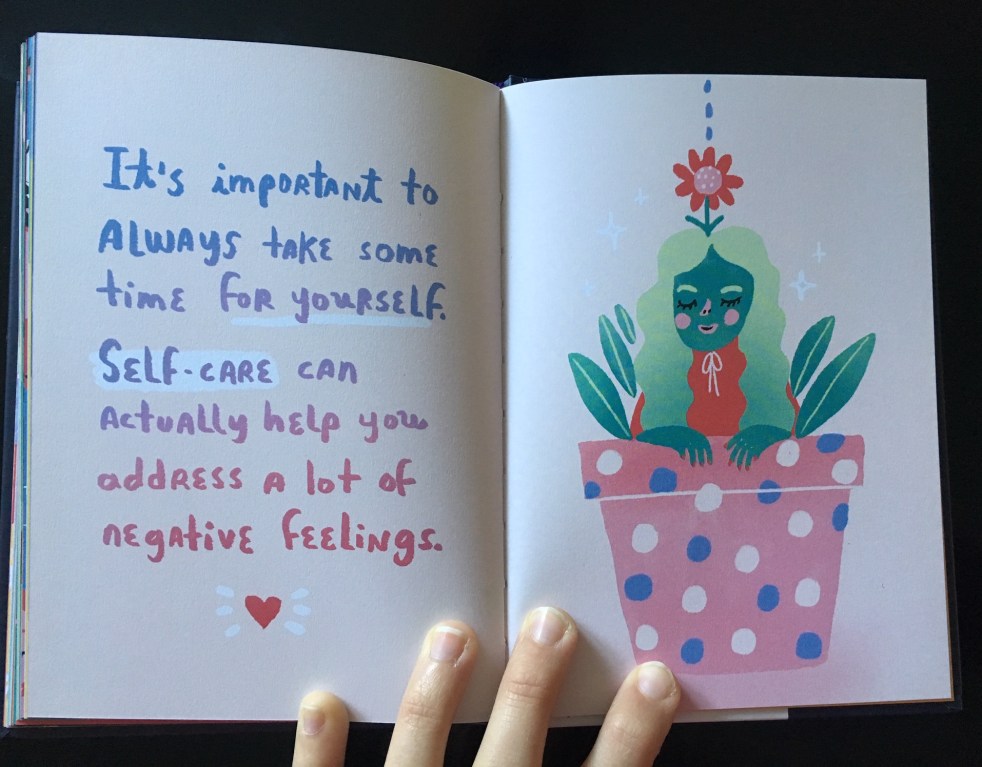 It's important to
ALWAYS take some
time for yourself.
Self-care can
actually help you
address a lot of
negative feelings.